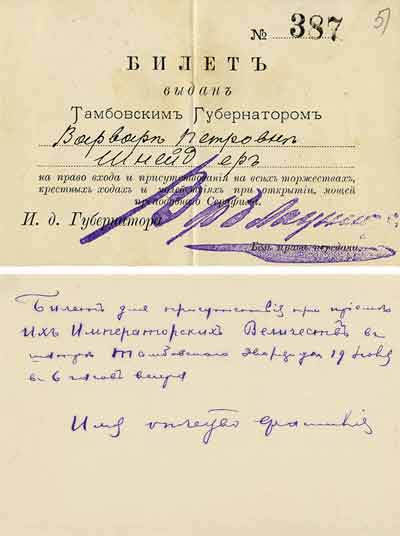 № 387 51
БИЛЕТЪ
выданъ
Тамбовскимъ Губернаторомъ
Варварѣ Петровнѣ
Шнейдеръ
на право входа и присутствованія на всѣхъ торжествахъ,
крестныхъ ходахъ и молебствіяхъ при открытіи мощей
преподобнаго Серафима.
И. д. Губернатора
Безъ права передачи.
Билетъ для присутствія при пріемѣ
Ихъ Императорскихъ Величествъ въ
Тамбовскаго дворянства 19
въ 6 часовъ вечера
Имя отчество фамилія